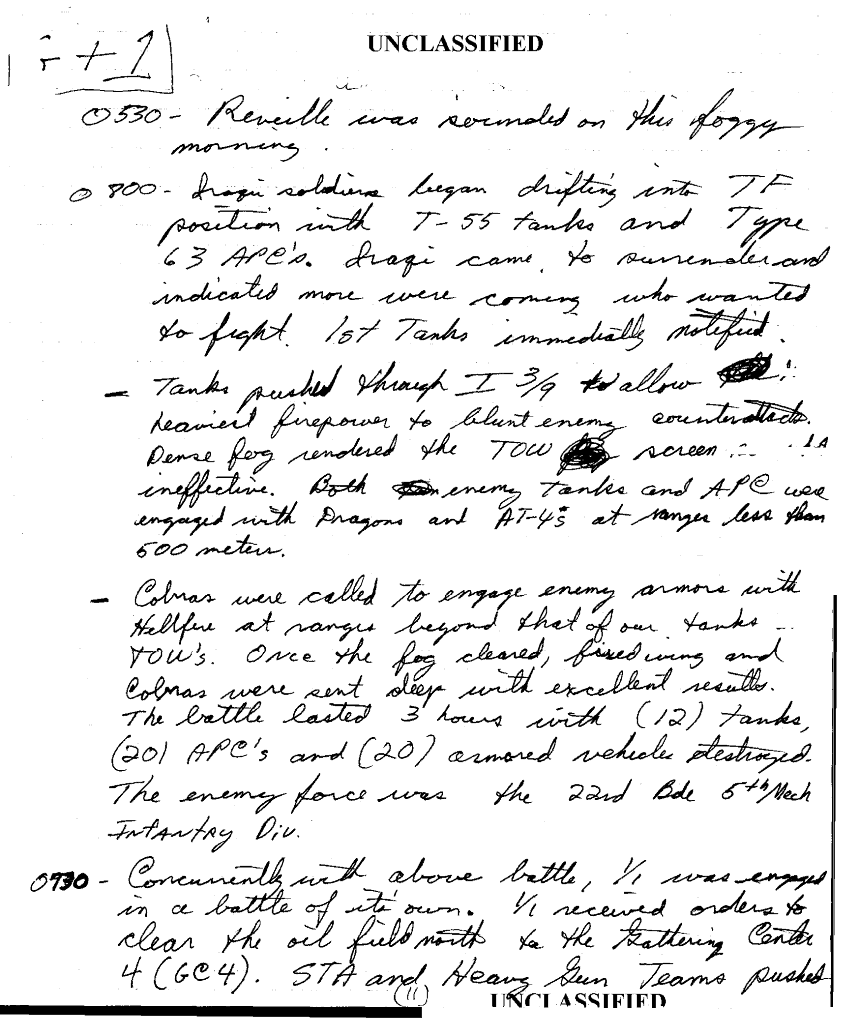 UNCLASSIFIED
+ 1
0530 - Reveille was sounded on this foggy
morning.
0800 - Iraqi soldiers began drifting into TF
position with T-55 tanks and Type
63 APC's. Iraqi came to surrender and
indicated more were coming who wanted
to fight. 1st Tanks immediately notified.
- Tanks pushed through I 3/9 to allow
heaviest firepower to blunt enemy counterattack.
Dense fog rendered the TOW screen
ineffective. Both enemy tanks and APC were
engaged with Dragons and AT-4's at ranges less than
500 meters.
- Cobras were called to engage enemy armors with
Hellfire at ranges beyond that of our tanks
TOW's. Once the fog cleared, fixed wing and
Cobras were sent deep with excellent results.
The battle lasted 3 hours with (12) tanks,
(20) APC's and (20) armored vehicles destroyed.
The enemy force was the 22nd Bde 5th Mech
Infantry Div.
0730 - Concurrently with above battle, 1/1 was engaged
in a battle of it's own. 1/1 received orders to
clear the oil field north to the Gathering Center
4 (GC4). STA and Heavy Gun Teams pushed
(11)
UNCLASSIFIED